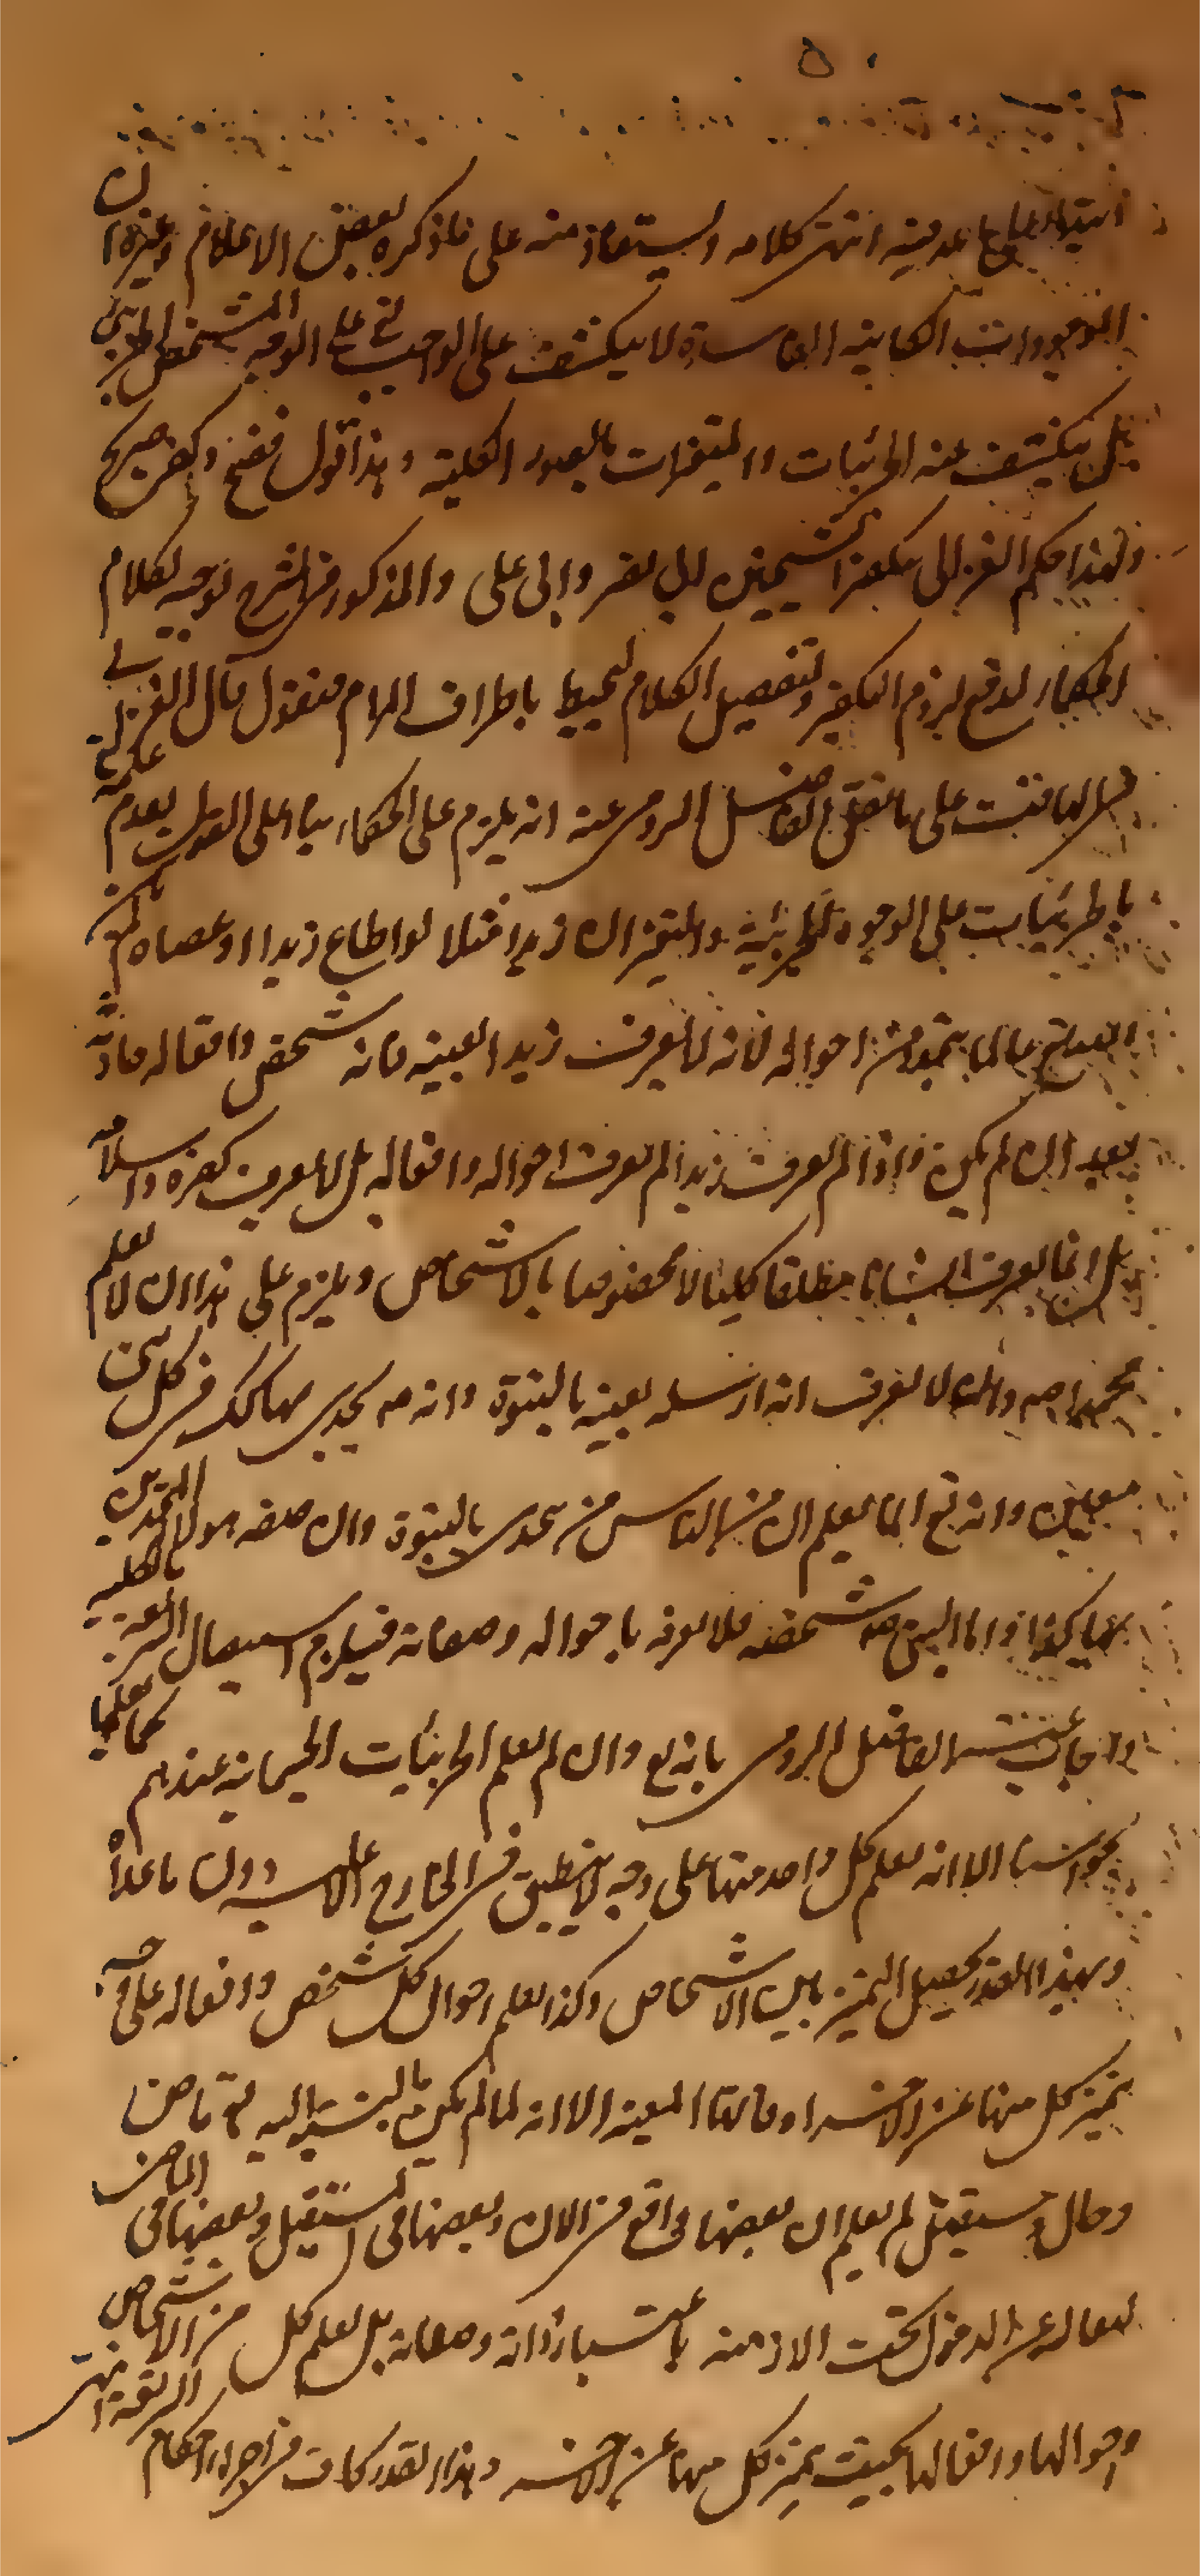 انتهى كلامه وليستفاد منه على ما ذكره بعض الاعلام وغيره ان
الموجودات الكائنة الفاسدة لا ينكشف على الواجب تع على الوجه المشخص الجزئي
بل ينكشف عنه الجزئيات والمتغيرات بالصور الكلية وهذا قول فضيح وكفر صريح
ولهذا حكم الغزالي بكفر الشيخين ابي نصر وابي علي والمذكور في الشرح توجيه لكلام
الحكماء لدفع لزوم التكفير ولتفصيل الكلام ليحيط باطراف المرام فنقول قال الغزالي في
التهافت على ما نقل الفاضل الرومي عنه انه يلزم على الحكماء بناء على القول بعدم علمه تع
بالجزئيات على الوجوه الجزئية والمتغيرة ان زيدا مثلا لو اطاع زيدا او عصاه لم يكن
الله تع عالما بتجدد من احواله لانه لا يعرف زيدا بعينه فانه شخص وافعاله حادثة
بعد ان لم يكن واذا لم يعرف زيدا لم يعرف احواله وافعاله بل لا يعرف كفره واسلامه
بل انما يعرف انسانا مطلقا كليا لا مخصوصا بالاشخاص ويلزم على هذا ان لا يعلم
محمدا صم وان لا يعرف انه ارسله بعينه بالنبوة وانه صم تحدى بها وكذلك في كل نبي
معين وانه تع انما يعلم ان من الناس من تحدى بالنبوة وان صفة هولاء المتحدين
بها كذا واما النبي صم شخصه فلا يعرفه باحواله وصفاته فيلزم استيصال الشريعة بالكلية
واجاب عنه الفاضل الرومي بانه تع وان لم يعلم الجزئيات الجسمانية عندهم كما نعلمها
بحواسنا الا انه يعلم كل واحد منها على وجه لا ينطبق في الخارج الا عليه دون ما عداه
وبهذا القدر يحصل التميز بين الاشخاص وكذا يعلم احوال كل شخص وافعاله على وجه
يتميز كل منها عن الاخر اوقاتها المعينة الا انه لما لم يكن بالنسبة اليه تع ماض
وحال ومستقبل لم يعلم ان بعضها واقع في الان وبعضها في المستقبل وبعضها في الماضي
لتعاليه عن الدخول تحت الازمنة باعتبار ذاته وصفاته بل يعلم كل من الاشخاص
واحوالها وافعالها بحيث يتميز كل منها عن الاخر وهذا القدر كاف في اجراء احكام الشريعة انتهى